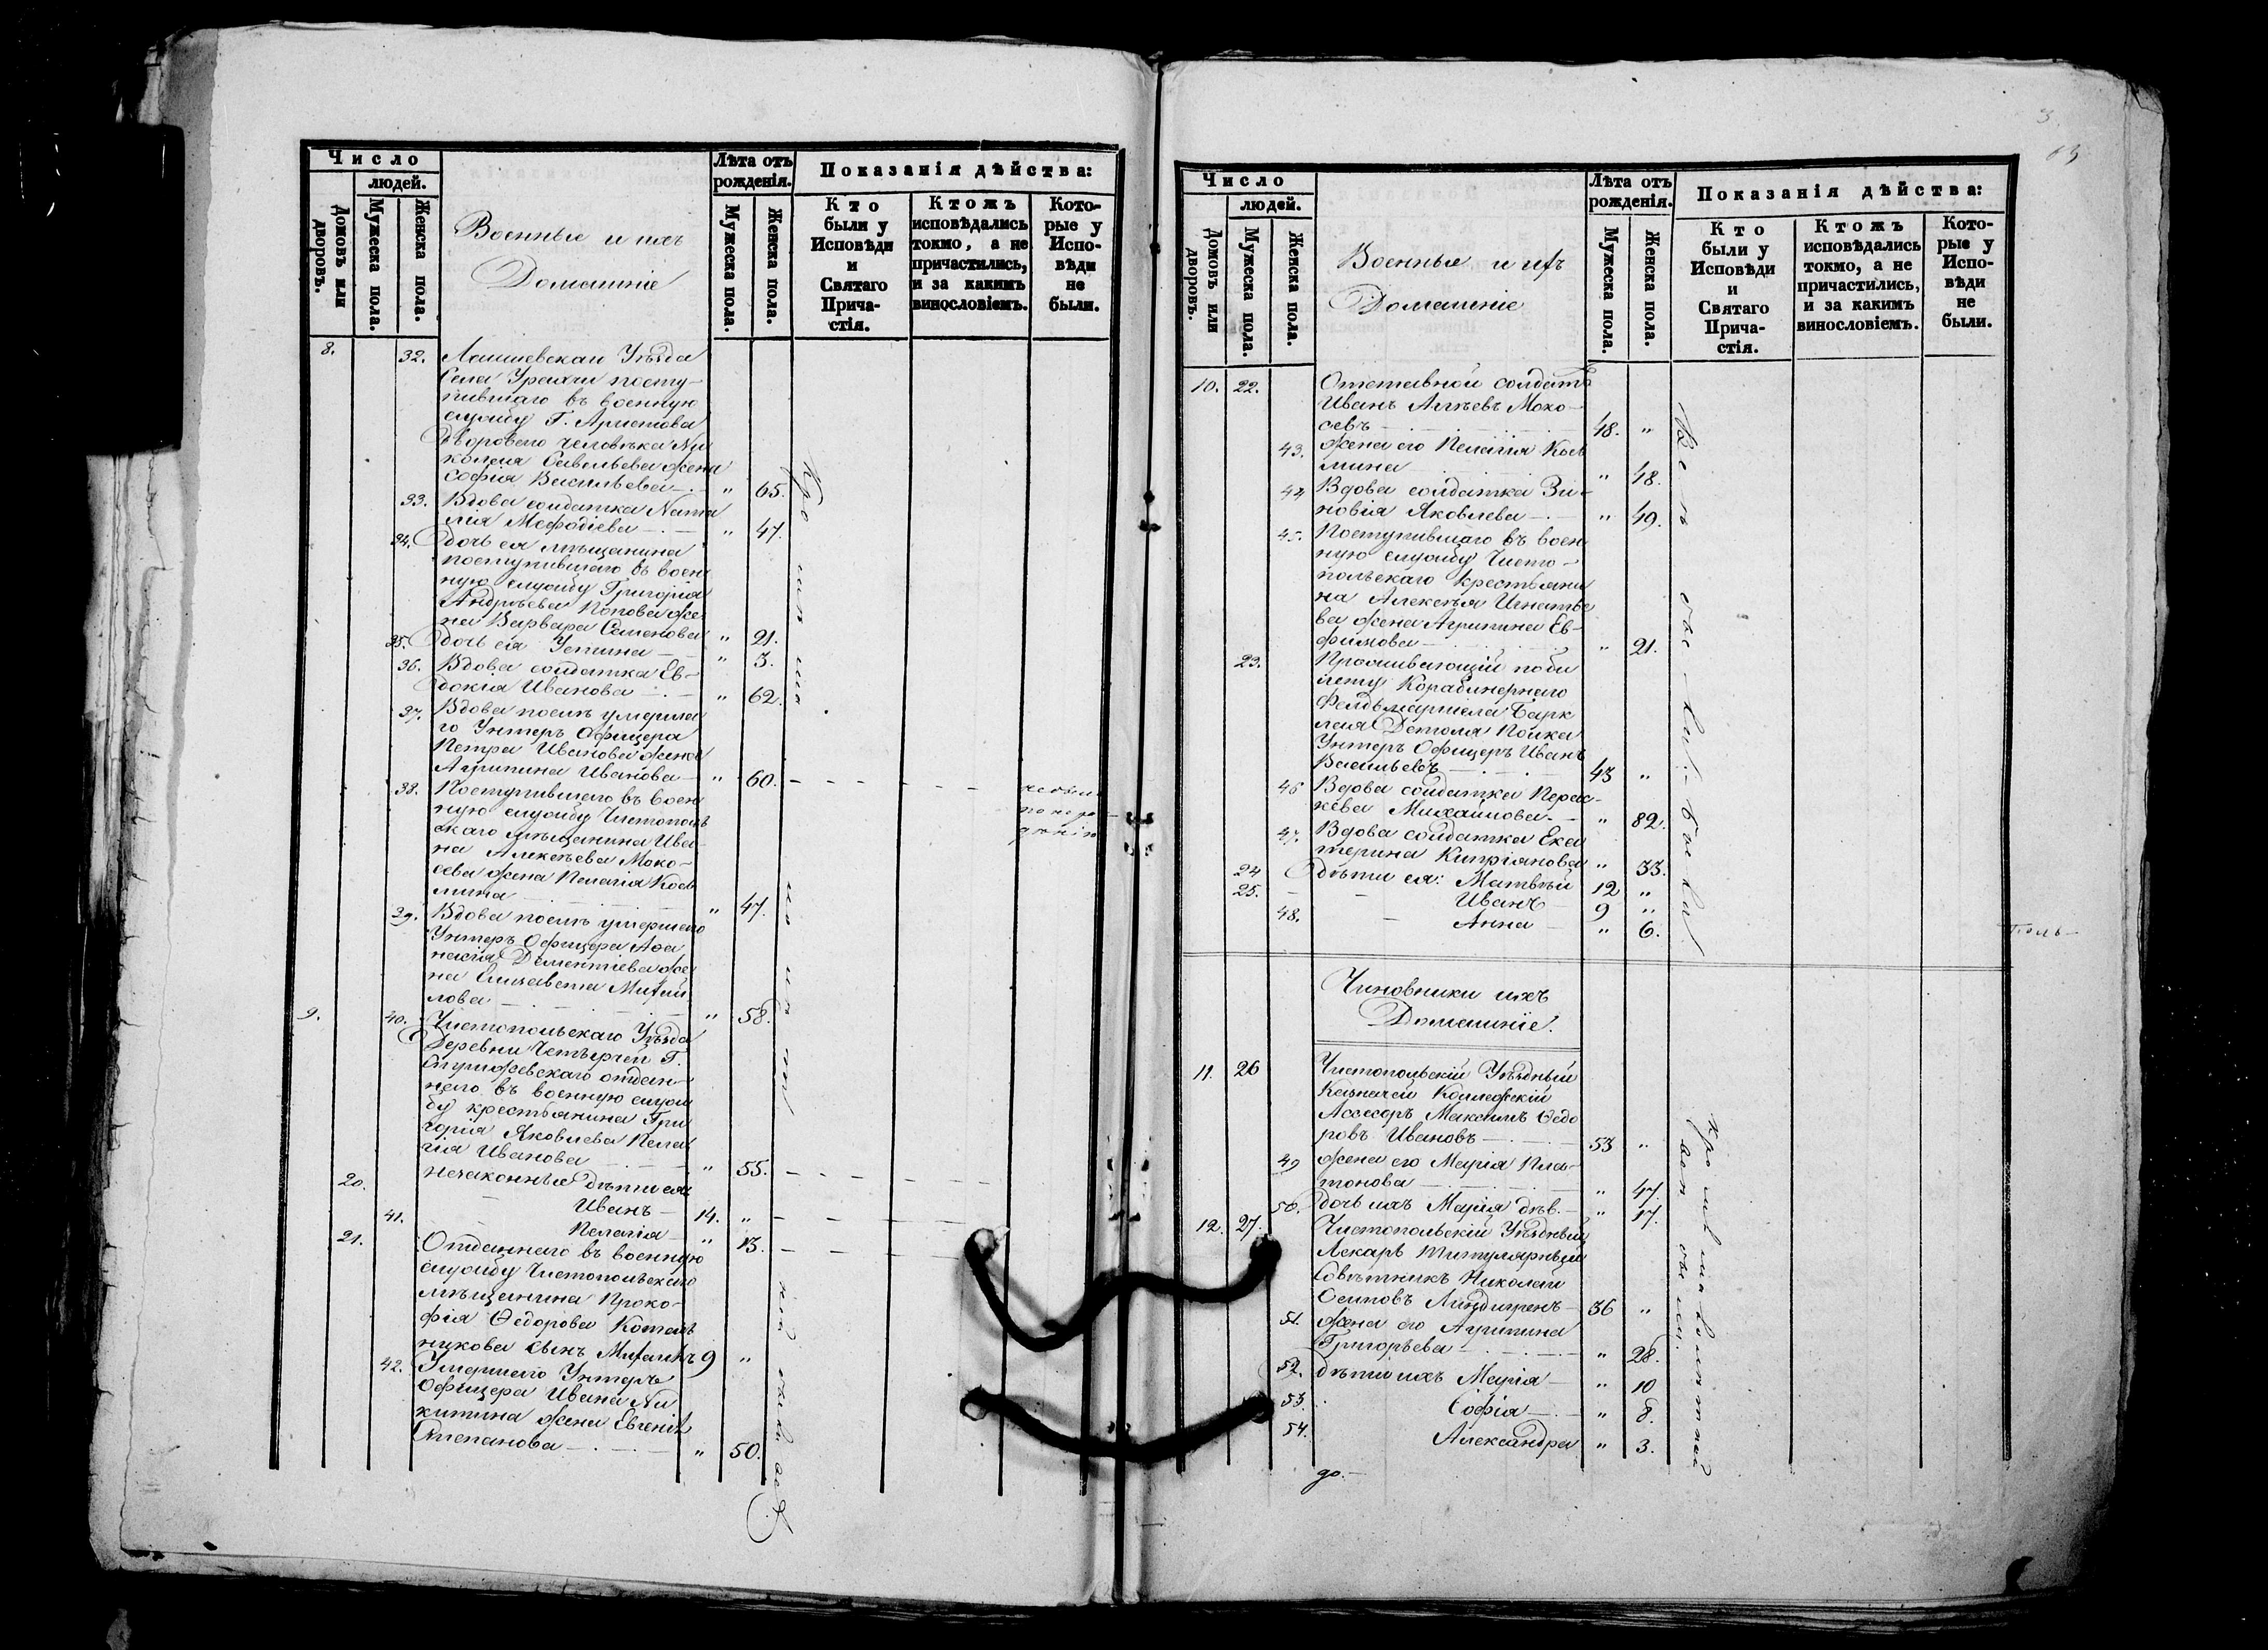 Число
людей.
Домовъ или дворовъ.
Мужеска пола.
Женска пола.
Военные и ихъ
Домашніе
Лѣта отъ
рожденія.
Мужеска пола.
Женска пола.
Показанія дѣйства:
Кто
были у
Исповѣди
и
Святаго
Прича-
стія.
Ктожъ
исповѣдались
токмо, а не
причастились,
и за какимъ
винословіемъ.
Кото-
рые у
Испо-
вѣди
не
были.
8. 32. Лаишевскаго Уѣзда
Села посту-
пившаго въ военную
службу Г. Аристова
Двороваго человѣка Ни
колая Савельева жена
Софія Васильева " 65.
33. Вдова солдатка Ната
лія Мефодіева " 47.
34. дочь ея мѣщанина
поступившаго въ воен
ную службу Григорія
Андрѣева Попова же
на Варвара Семенова " 21.
35. дочь ея Устина " 3.
36. Вдова солдатка Ев-
докія Иванова " 62.
37. Вдова послѣ умерша
го Унтеръ Офицера
Петра Иванова жена
Агрипина Иванова " 60.
38. Поступившаго въ воен
ную службу Чистополь
скаго мѣщанина Ива
на Алексѣева Моко-
сева жена Пелагія Козь
мина " 47.
39. Вдова послѣ умершаго
Унтеръ Офицера Аѳа
насія Дементіева же
на Елизавета Михай
лова " 58.
9. 40. Чистопольскаго Уѣзда
Деревни Г.
отдан-
наго въ военную служ
бу крестьянина Гри
горія Яковлева Пела
гія Иванова " 55.
незаконные дѣти ея
20. Иванъ 14. "
41. Пелагія " 13.
21. Отданнаго въ военную
службу Чистопольскаго
мѣщанина Проко-
фія Ѳедорова Котель
никова сынъ Михаилъ 9 "
42. Умершаго Унтеръ
Офицера Ивана Ни
китина жена Евгенія
Степанова " 50.
3.
Число
людей.
Домовъ или дворовъ.
Мужеска пола.
Женска пола.
Военные и ихъ
Домашніе
Лѣта отъ
рожденія.
Мужеска пола.
Женска пола.
Показанія дѣйства:
Кто
были у
Исповѣди
и
Святаго
Прича-
стія.
Ктожъ
исповѣдались
токмо, а не
причастились,
и за какимъ
винословіемъ.
Кото-
рые у
Испо-
вѣди
не
были.
10. 22. Отставной солдатъ
Иванъ Моко-
севъ 48. "
43. жена его Пелагія Козь
мина " 48.
44 Вдова солдатка Зи-
новія Яковлева " 49.
45. Поступившаго въ воен
ную службу Чисто-
польскаго крестьяни
на Алексѣя Игнатье
ва жена Агрипина Ев-
фимова " 21.
23. Проживающій по би
лету Корабинернаго
Фельдмаршала Барк
лая Детоля Полка
Унтеръ Офицеръ Иванъ
Васильевъ 43 "
46 Вдова солдатка Парас-
кева Михайлова " 82.
47. Вдова солдатка Ека
терина Кипріянова " 33.
24 дѣти ея: Матвѣй 12 "
25. Иванъ 9 "
48. Анна " 6.
Чиновники ихъ
Домашніе.
11. 26 Чистопольскій Уѣздный
Казначей Коллежскій
Ассесоръ Максимъ Ѳедо
ровъ Ивановъ 53 "
49 жена его Марія Пла-
тонова " 47.
50. дочь ихъ Марія дѣв. " 17.
12. 27. Чистопольскій Уѣздный
Лекарь Титулярный
Совѣтникъ Николай
Осиповъ 36 "
51. жена его Агрипина
Григорьева " 28.
52. дѣти ихъ Марія " 10
53. Софія " 8.
54. Александра " 3.